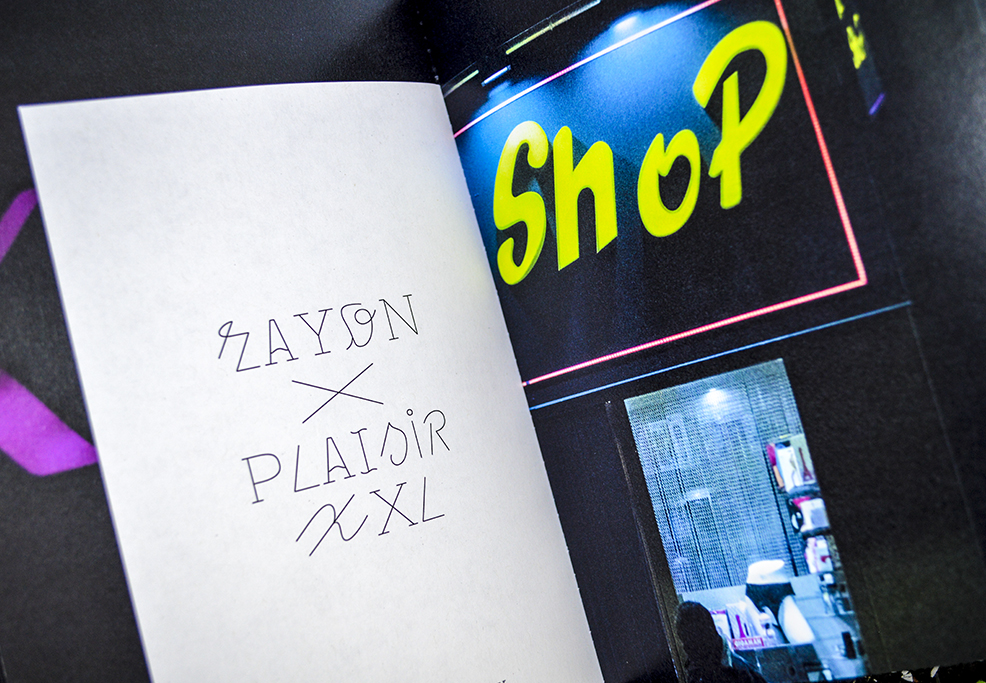 RAYON
X
PLAISiR
XXL
ShoP